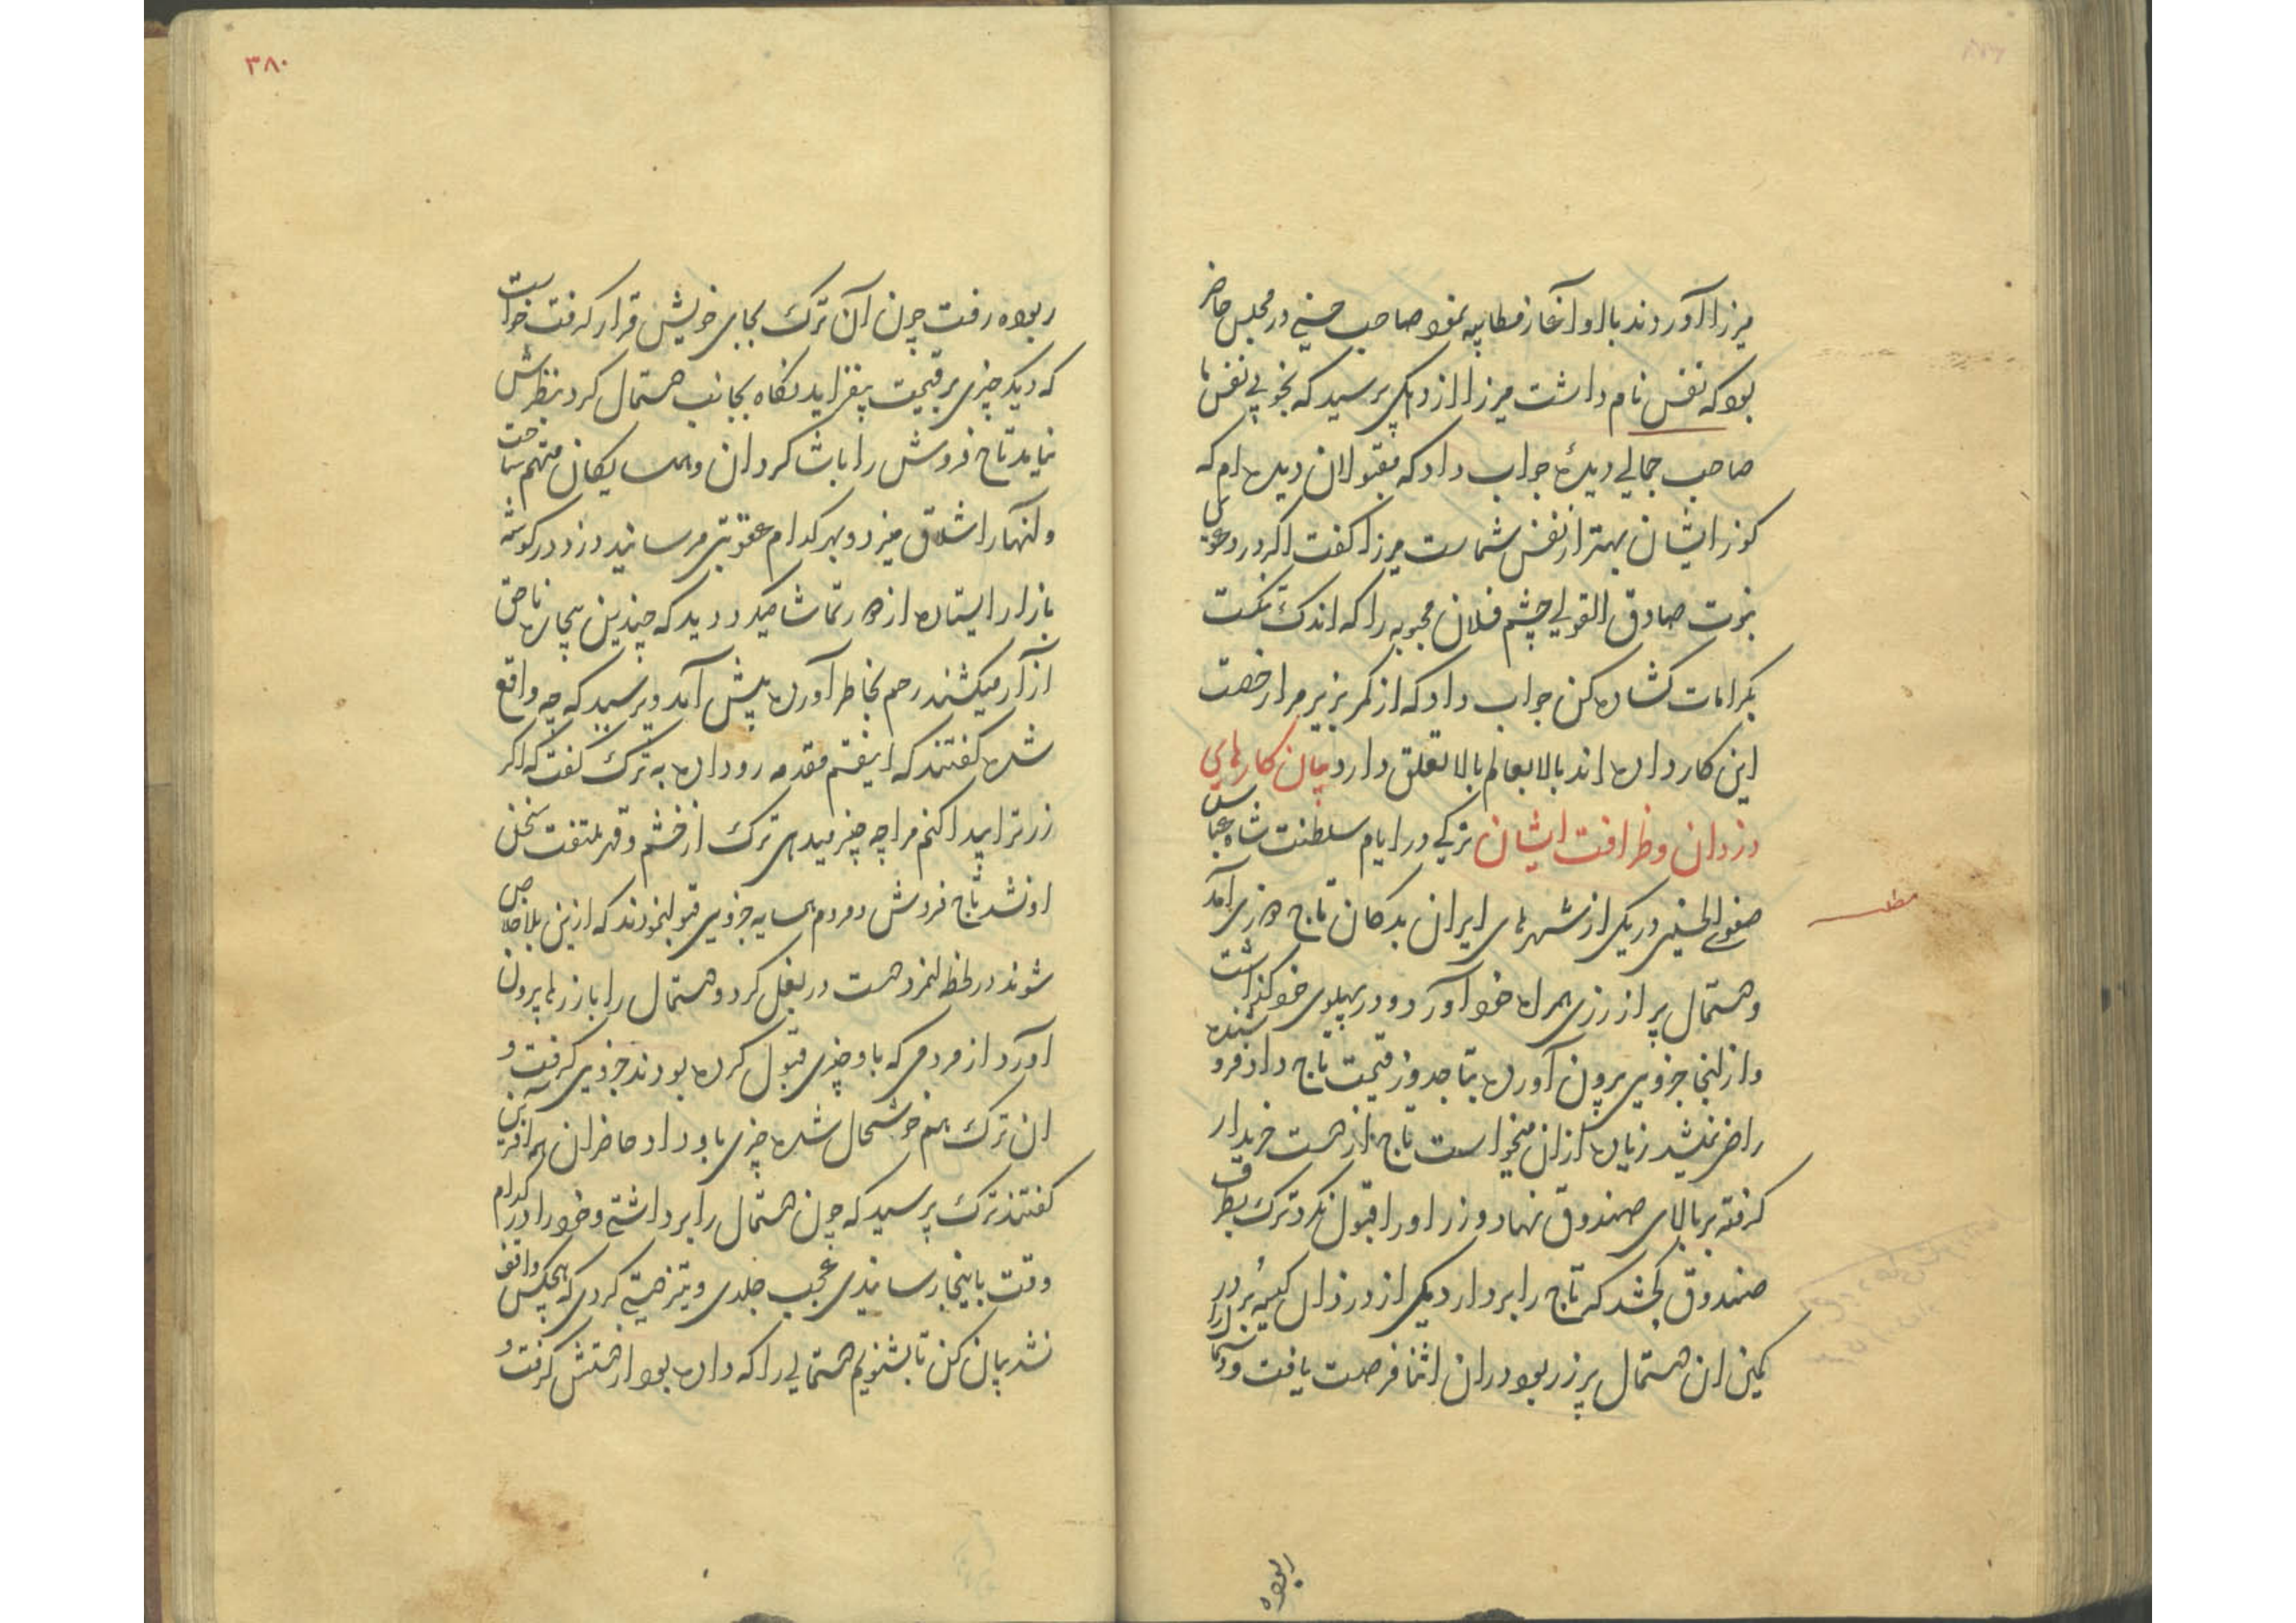 میرزا آوردند باو آغاز مطایبه نمود صاحب حسنی در مجلس حاضر
بود که نفس نام داشت میرزا از دکی پرسید که بخوبی نفس ما
صاحب جمالی دیدهٔ جواب داد که مقبولان دیده‌ام که
کوز ایشان بهتر از نفس شماست میرزا گفت اگر در دعوی
نبوت صادق القولی چشم فلان محبوبه را که اندک تنگست
بکرامات کشاده کن جواب داد که از کمر بزیر مرا رخصت
این کار داده‌اند بالا بعالم بالا تعلق دارد بیان کارهای
دزدان و ظرافت ایشان ترکی در ایام سلطنت شاه عباس
صفوی الحسینی در یکی از شهرهای ایران بدکان تاج دوزی آمد
و دستمال پر از زری همراه خود آورد و در پهلوی خود گذاشت
و از آنجا جزوی بیرون آورده بتاجدوز قیمت تاج داد فروشنده
راضی نمیشد زیاده از آن میخواست تاج از دست خریدار
گرفته بر بالای صندوق نهاد و زر او را قبول نکرد ترک بطرف
صندوق کجشد که تاج را بردارد یکی از دزدان کیسه‌بر در
کمین آن دستمال پر زر بود در آن اثنا فرصت یافت و دستمال را
ربوده
مطلب
۳۸۰
ربوده رفت چون آن ترک بجای خویش قرار گرفت خواست
که دیگر چیزی بر قیمت بیفزاید نگاه بجانب دستمال کرد بنظرش
نیامد تاج فروش را با شاگردان و همسایگان متهم ساخت
و آنها را شلاق میزد و بهر کدام عقوبتی میرسانید دزد در گوشه
بازار ایستاده از دور تماشا میکرد دید که چندین بیچاره ناحق
آزار میکشند رحم بخاطر آورده پیش آمد و پرسید که چه واقع
شده گفتند که اینقسم مقدمه رو داده به ترک گفت که اگر
زر ترا پیدا کنم مرا چه چیز میدهی ترک از خشم و قهر ملتفت سخن
او نشد تاج فروش و مردم همسایه جزوی قبول نمودند که ازین بلا خلاص
شوند در لحظه آنمرد دست در بغل کرد و دستمال را با زرها بیرون
آورد از مردمی که باو چیزی قبول کرده بودند جزوی گرفت و
آن ترک هم خوشحال شده چیزی باو داد حاضران همه آفرین
گفتند ترک پرسید که چون دستمال را برداشتی و خود را در کدام
وقت باینجا رسانیدی عجب جلدی و تیزدستی کردی که هیچکس واقف
نشد بیان کن تا بشنویم دستمالی را که داده بود از دستش گرفت و